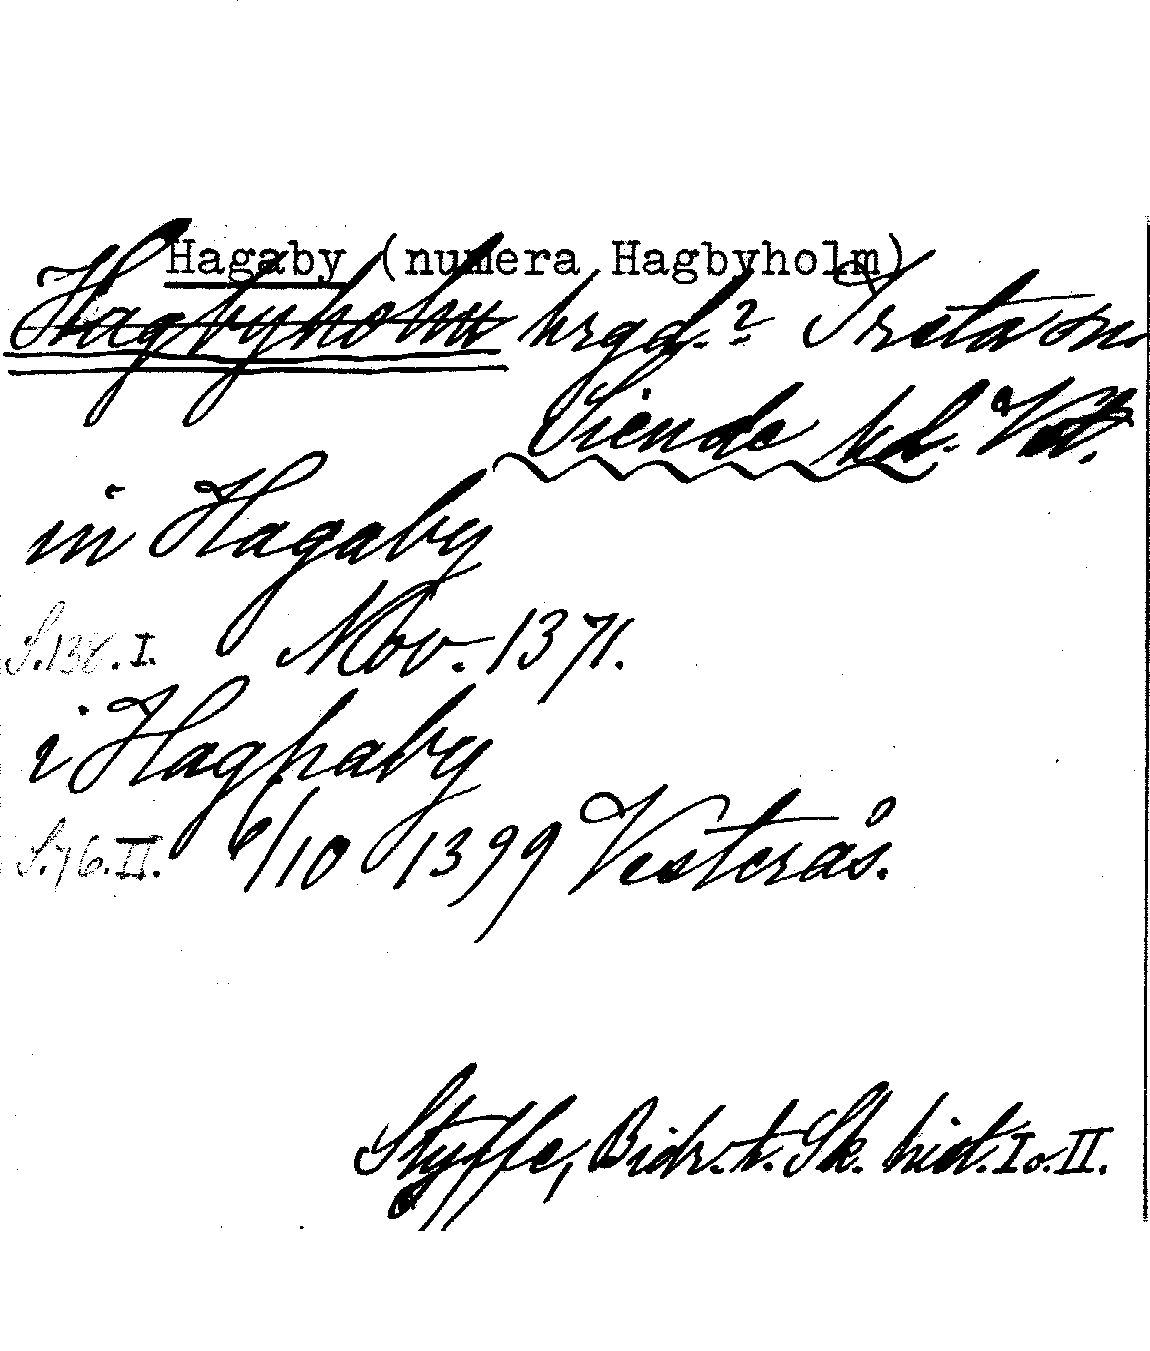 Hagaby (numera Hagbyholm)
Hagbyholm hrgd.? Irsta sn.
Siende hd. Vstl.
in Hagaby
S.138.I. Nov. 1371.
i Haghaby
S.76.II. 6/10 1399 Vesterås.
Styffe, Bidr. t. Sk. hist. I o. II.